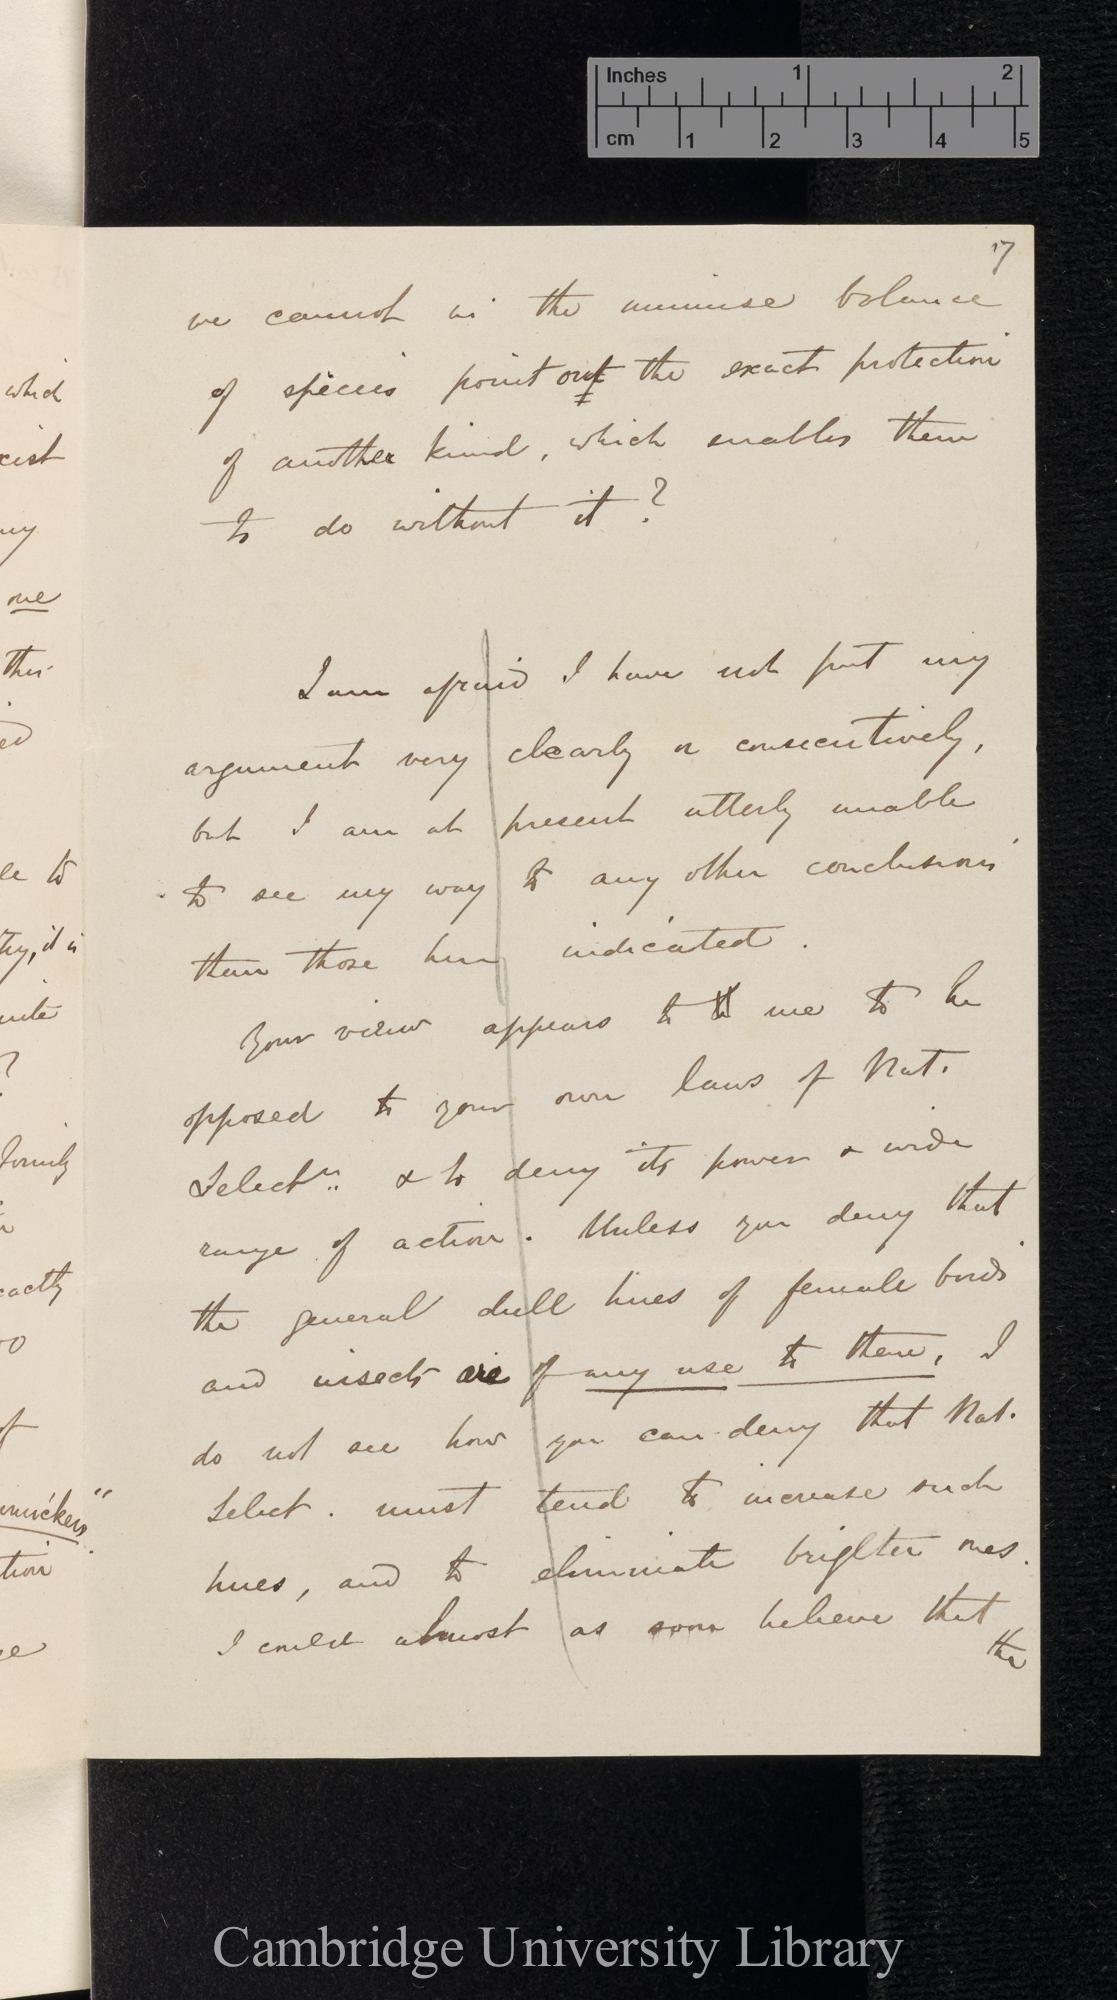 Inches 1 2
cm 1 2 3 4 5
17
we cannot in the immense balance
of species point out the exact protection
of another kind, which enables them
to do without it?
I am afraid I have not put my
argument very clearly or consecutively,
but I am at present utterly unable
to see my way to any other conclusions
than those here indicated.
Your view appears to me to be
opposed to your own laws of Nat.
Selectn. & to deny its power & wide
range of action. Unless you deny that
the general dull hues of female birds
and insects are of any use to them, I
do not see how you can deny that Nat.
Select. must tend to increase such
hues, and to eliminate brighter ones.
I could almost as soon believe that
the
which
my
one
this
le to
it is
?
family
of
Cambridge University Library